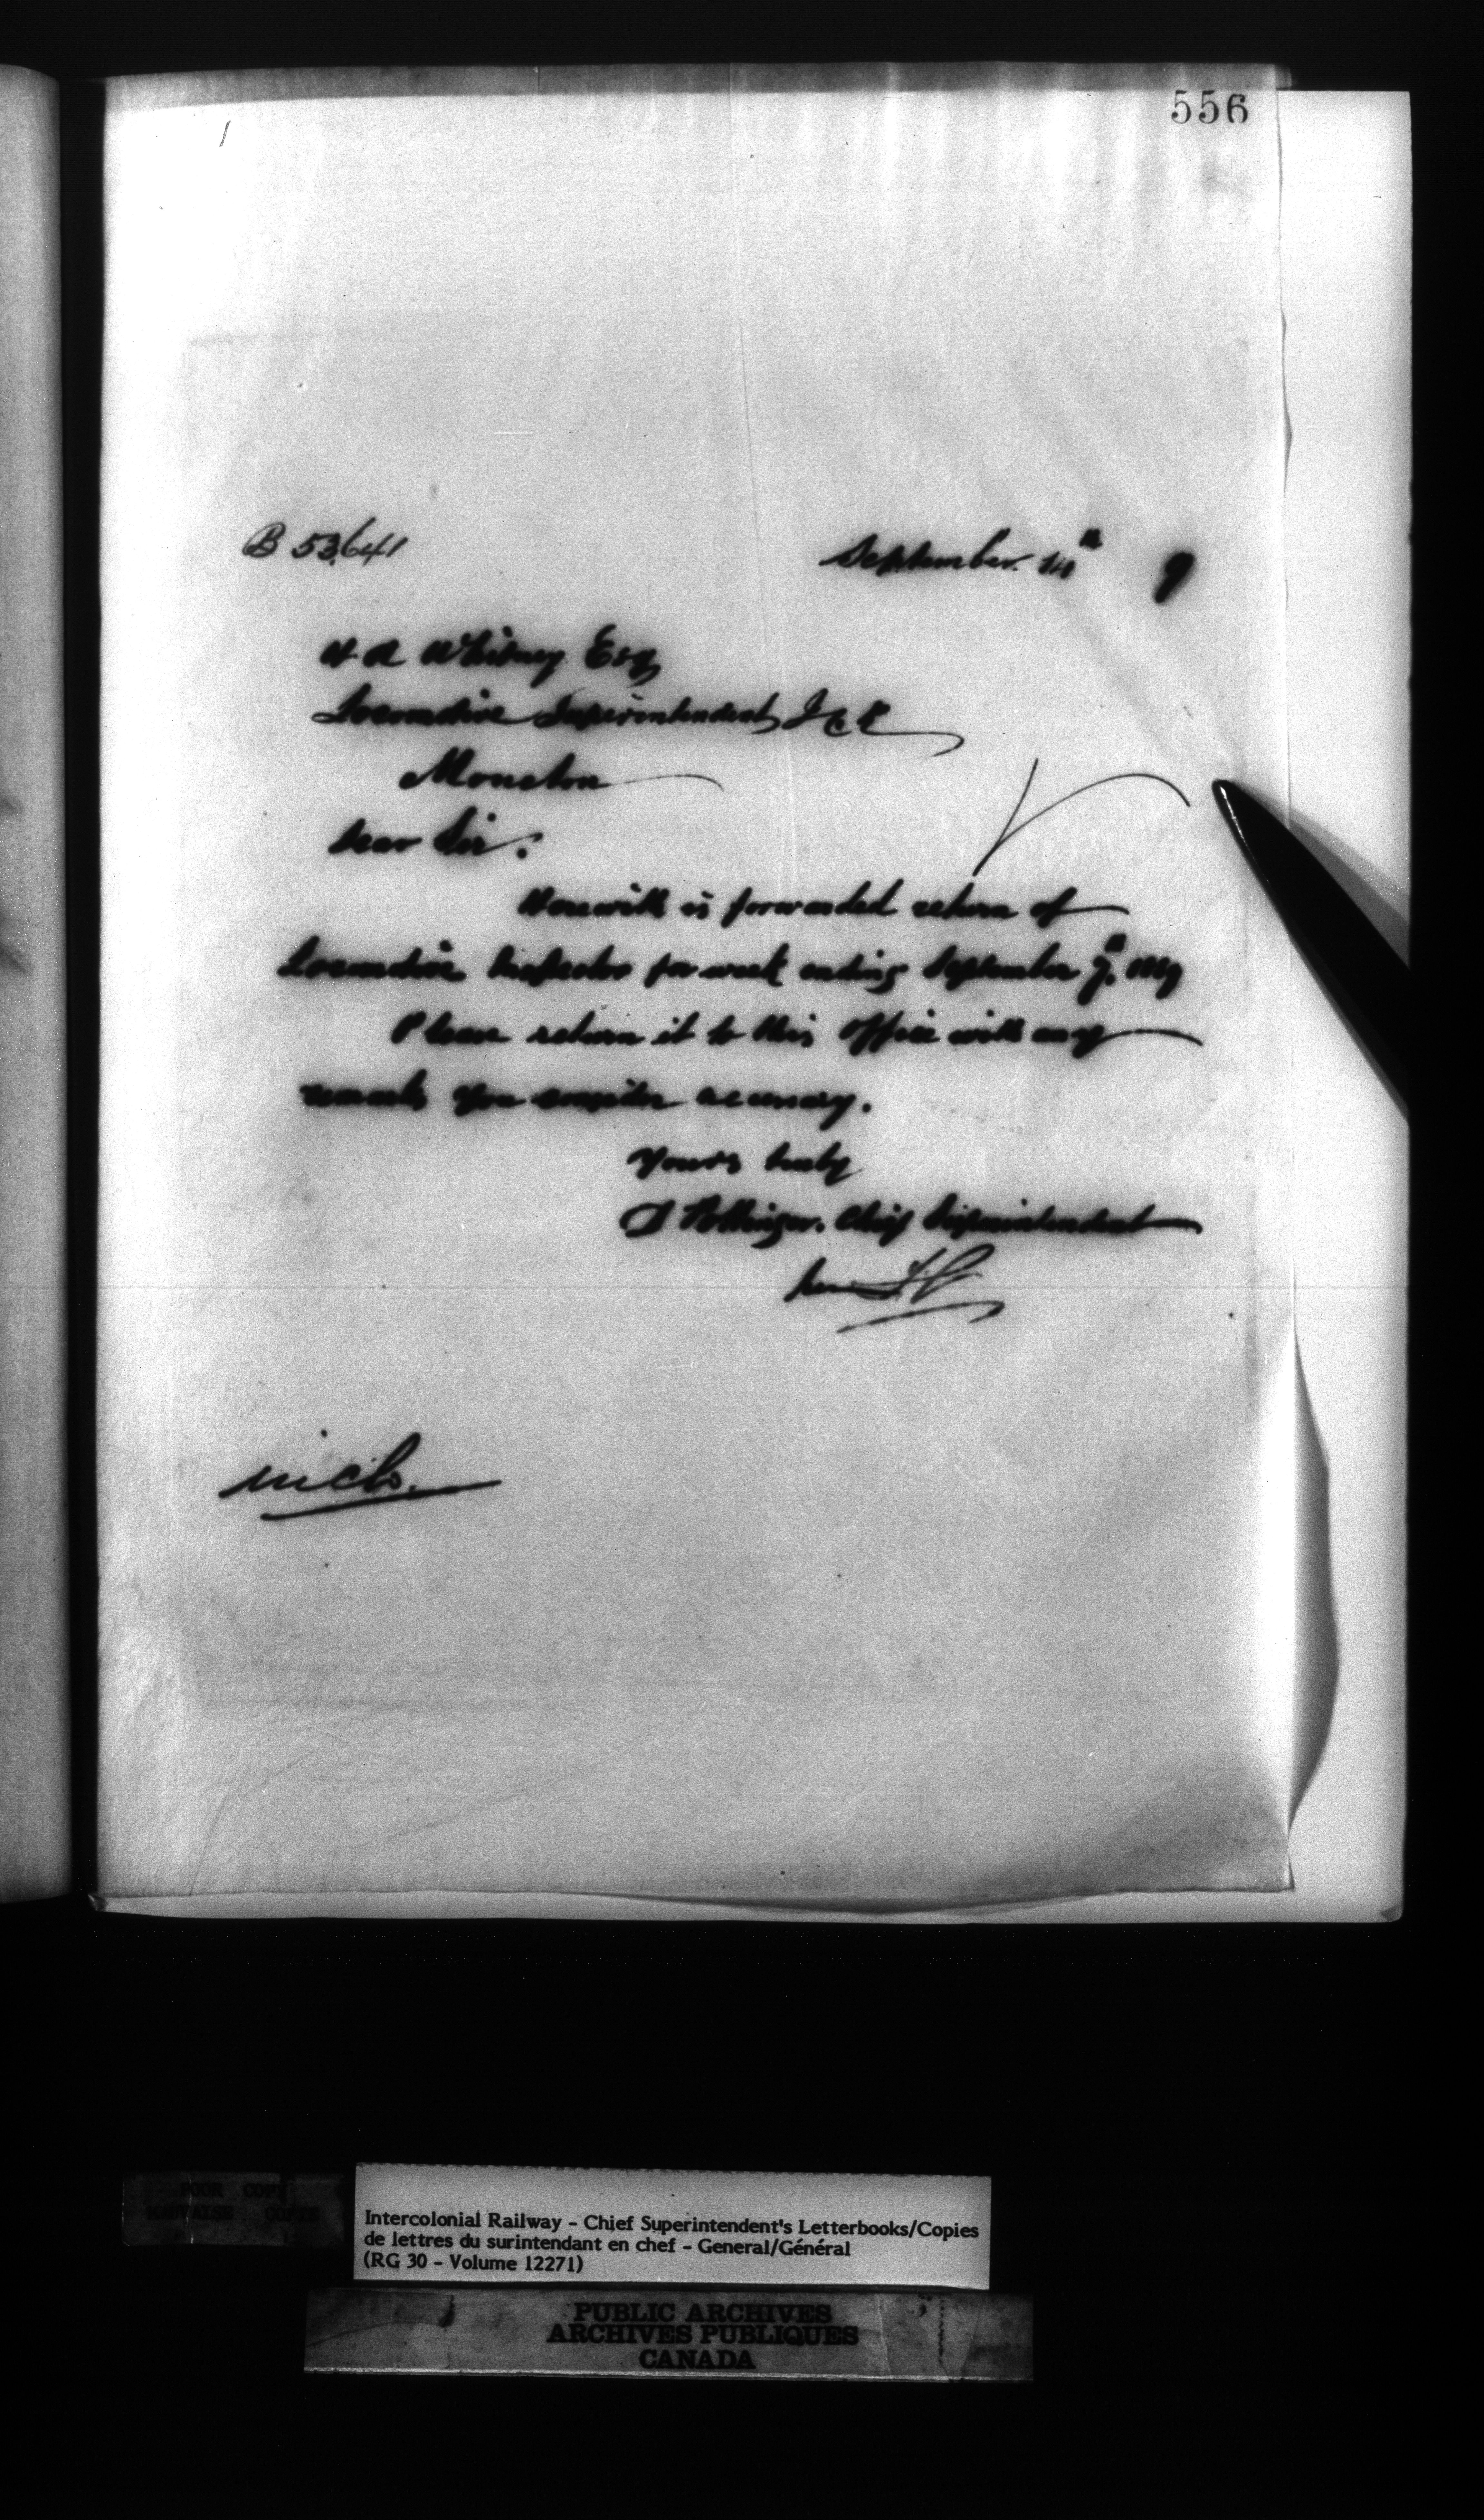 556
B 53641
September 14th 9
H A Whitney Esq
Locomotive Superintendent I C R
Moncton
Dear Sir:
Herewith is forwarded return of
Locomotive Inspector for week ending September 7th 1889
Please return it to this office with any
remarks you consider necessary.
Yours truly
D Pottinger. Chief Superintendent
incls.
POOR COPY
MAUVAISE COPIE
Intercolonial Railway - Chief Superintendent's Letterbooks/Copies
de lettres du surintendant en chef - General/Général
(RG 30 - Volume 12271)
PUBLIC ARCHIVES
ARCHIVES PUBLIQUES
CANADA